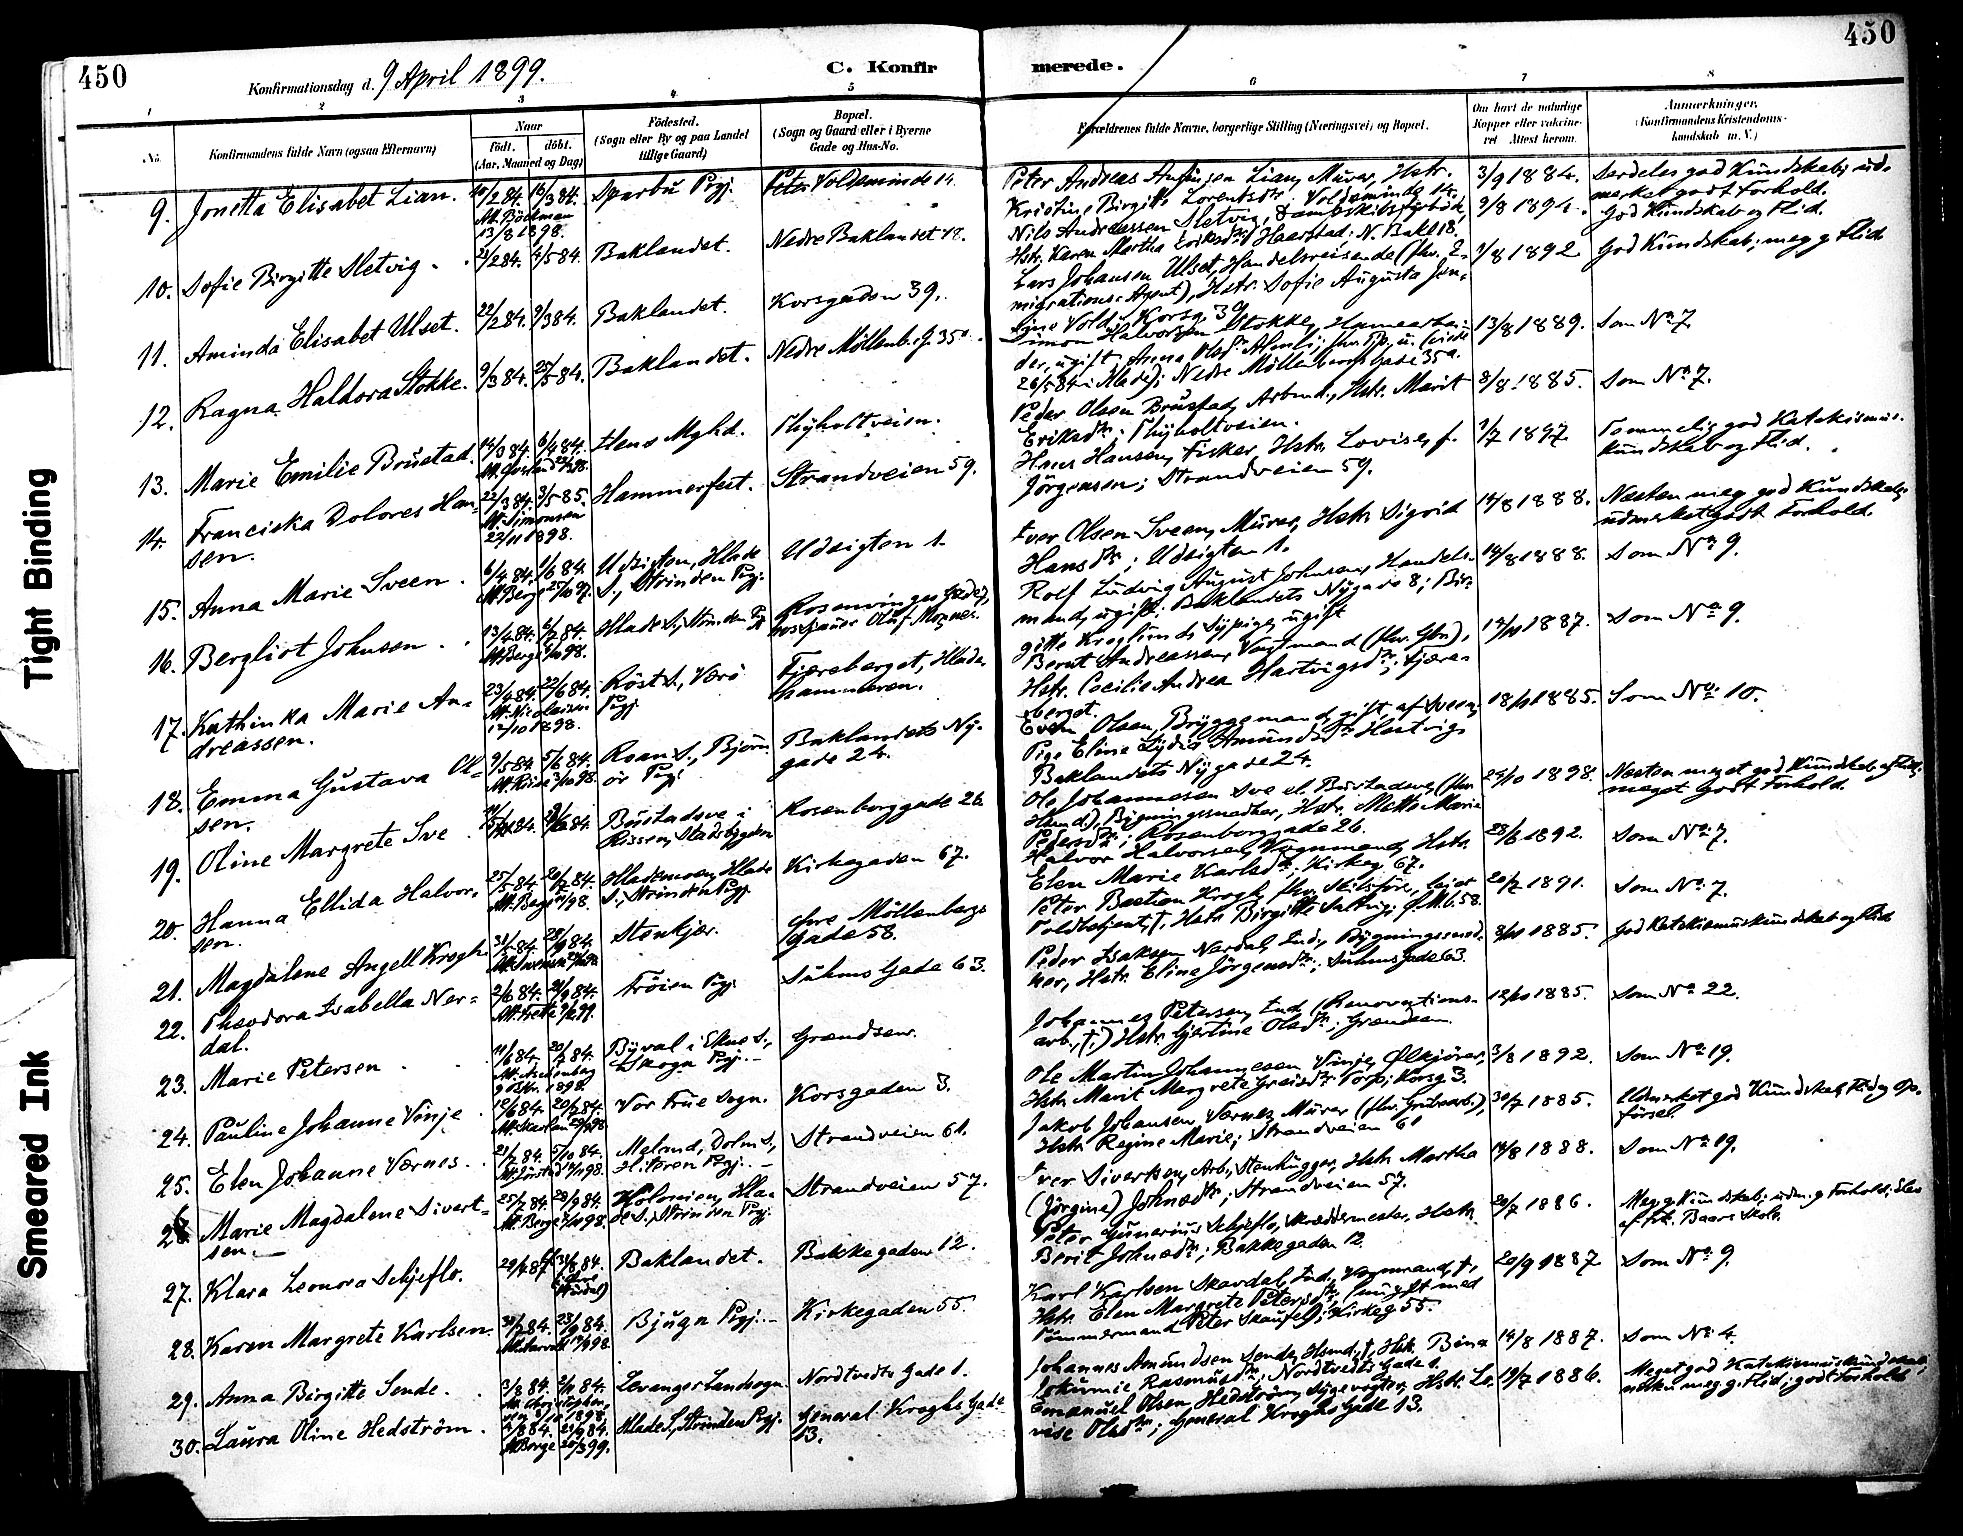 450
450
Konfirmationsdag d. 9 April 1899.
C. Konfir
merede.
1
2
3
4
5
6
7
8
No.
Konfirmandens fulde Navn (ogsaa Efternavn)
Naar
født.
døbt.
(Aar, Maaned og Dag)
Fødested.
(Sogn eller By og paa Landet
tillige Gaard)
Bopæl.
(Sogn og Gaard eller i Byerne
Gade og Hus-No.
Forældrenes fulde Navne, borgerlige Stilling (Næringsvei) og Bopæl.
Om havt de naturlige
Kopper eller vaccine-
ret Attest herom.
Anmærkninger.
(Konfirmandens Kristendoms-
kundskab m. V.)
9. Jonetta Elisabet Lian. 16/3 84. Sparbu Pgj. Voldsminde 14.
Peter Andreas Lian, Murer, Hstr.
Kristine Birgitte Lorentsdtr; Voldsminde 14.
3/9 1884. Særdeles god Kundskab; ud-
merket godt Forhold.
13/8 1898.
10. Sofie Birgitte Sletvig. 4/5 84. Baklandet. Nedre Baklandet 18.
Nils Andreassen Sletvig,
Hstr. Karen Martha N. Bakl 18.
9/8 1894. God Kundskab og Flid.
11. Aminda Elisabet Ulset. 22/2 84. 9/3 84. Baklandet. Korsgaden 39.
Lars Johansen Ulset, Handelsreisende (fhv. E-
migrations-Agent), Hstr. Sofie Augusta Jen-
sine Vold; Korsg. 39.
1/8 1892. God Kundskab; meg. g. Flid
12. Ragna Haldora Stokke. 9/3 84. 25/5 84. Baklandet. Nedre Møllenb. G. 35a.
Simon Halvorsen Stokke, Havnearbei-
der, ugift, Anna
Nedre Møllenbergsgade 35a.
13/8 1889. Som No 7.
13. Marie Emilie Brustad. 14/3 84. 6/4 84. Hens Mghd. Thyholtveien.
Peder Olsen Brustad, Arbmd., Hstr. Marit
Eriksdtr; Thyholtveien.
8/8 1885. Som No 7.
14. Franciska Dolores Han-
sen.
22/3 84. 3/5 85. Hammerfest. Strandveien 59.
At. Simonsen
22/11 1898.
Hans Hansen, Fisker, Hstr. Lovise, f.
Jørgensen; Strandveien 59.
1/7 1897. Temmelig god Katekismus-
kundskab og Flid.
15. Anna Marie Sveen. 6/4 84. 1/6 84. Udsigten, Hlade
S., Strinden Pgj. Udsigten 1.
Iver Olsen Sveen, Murer, Hstr. Sigrid
Hansdtr; Udsigten 1.
14/8 1888. Næsten meg. god Kundskab;
udmerket godt Forhold.
16. Bergliot Johnsen. 13/4 84. Hlade S., Strinden Pgj. Rosenvinges Gade,
hos Oluf
Rolf Ludvig August Johnsen, Handels-
mand, ugift; Baklandets Nygade 8; Bir-
gitte Kroglund, Sypige, ugift
14/8 1888. Som No 9.
17. Kathinka Marie An-
dreassen.
23/4 84. 22/6 84. Røst S., Værø
Pgj. Fjæreberget, Hlade-
hammeren.
At. Nicolaisen
12/10 1898.
Bernt Andreassen, Vognmand (fhv. Gbr.),
Hstr. Cecilie Andrea Hartvigsdtr; Fjære-
berget.
12/10 1887. Som No 9.
18. Emma Gustava Ol-
sen.
9/5 84. 5/6 84. Roan S., Bjørn-
ør Pgj. Baklandets Ny-
gade 24.
Even Olsen, Bryggemand, gift af Sveen,
Pige Eline Lydia Amundsdtr Hartvig,
Baklandets Nygade 24.
18/10 1885. Som No 10.
19. Oline Margrete Sve. Bustadsve i
Rissen, Stadsbygden Rosenborggade 26.
Ole Johannesen Sve el. Burstadsve, (fhv.
Hsmd), Bygningssnedker, Hstr. Mette Marie
Pedersdtr; Rosenborggade 26.
24/10 1898. Næsten meget god Kundskab og Flid;
meget godt Forhold.
20. Hanna Ellida Halvor-
sen.
25/5 84. 20/7 84. Hlademoen, Hlade
S., Strinden Pgj. Kirkegaden 67.
Halvor Halvorsen, Vognmand, Hstr.
Elen Marie Karlsdtr; Kirkeg. 67.
28/6 1892. Som No 7.
21. Magdalene Angell Krogh. 31/5 84. 28/9 84. Stenkjær. Øvre Møllenbergs
Gade 58.
Peter Bastian Krogh, fhv. Skibsfører,
Toldbetjent, †, Hstr. Birgitte Ø.M.G. 58.
20/7 1891. Som No 7.
22. Theodora Isabella Ner-
dal.
2/6 84. 21/9 84. Frøien Pgj. Suhms Gade 63.
Peder Isaksen Nerdal, Ind., Bygningssned-
ker, Hstr. Eline Jørgensdtr; Suhms Gade 63.
8/10 1885. God Katekismuskundskab og Flid
23. Marie Petersen. 20/7 84. Byval i Ekne S.,
Skogn Pgj. Grændsen.
Johannes Petersen, Ind. (Renovations-
arb., †,) Hstr. Gjertine Olsdtr; Grændsen.
12/10 1885. Som No 22.
24. Pauline Johanne Vinje. 12/6 84. 20/7 84. Vor Frue Sogn. Korsgaden 3.
Ole Martin Johannesen Vinje, Ølkjører,
Hstr. Marit Margrete Korsg. 3.
3/8 1892. Som No 19.
25. Elen Johanne Værnes. 21/7 84. 5/10 84. Melund, Dolm S.,
Hiteren Pgj. Strandveien 61.
Jakob Johansen Værnes, Murer (fhv. Grubearb.),
Hstr. Regine Marie; Strandveien 61
30/7 1885. Udmerket god Kundskab, Flid og Op-
førsel.
26. Marie Magdalene Sivert-
sen.
25/7 84. 28/9 84. Kolonien, Hla-
de S., Strinden Pgj. Strandveien 57.
Iver Sivertsen, Arb., Stenhugger, Hstr. Martha
(Jørgine) Johnsdtr; Strandveien 57.
14/8 1888. Som No 19.
27. Klara Leonora Schjeflo. 29/7 84. 31/8 84. Baklandet. Bakkegaden 12.
Peter Gunerius Schjeflo, Skræddermester, Hstr.
Berit Johnsdtr; Bakkegaden 12.
20/7 1886. Meg. g. Kundskab; udm. g. Forhold; Elev
af frk. Baars Skole.
28. Karen Margrete Karlsen. 30/7 84. 28/9 84. Bjugn Pgj. Kirkegaden 55.
Karl Karlsen Skavdal, Ind., Vognmand, †,
Hstr. Elen Margrete Petersdtr, (nu gift med
Tømmermand Peter Skaufel); Kirkeg. 55.
20/9 1887 Som No 9.
29. Anna Birgitte Sende. 3/8 84. Levanger Landsogn. Nordtvedts Gade 1.
Johannes Amundsen Sende, Hsmd., †, Hstr. Bina
Rasmusdtr; Nordtvedts Gade 1.
14/8 1887. Som No 4.
30. Laura Oline Hedström. 21/9 84. Hlade S., Strinden Pgj. General Kroghs Gade
13.
Emanuel Olsen Hedström, Hstr. Lo-
vise Olsdtr; General Kroghs Gade 13.
19/7 1886. Meget god Katekismuskundskab;
meg. g. Flid; godt Forhold
Tight Binding
Smeared Ink